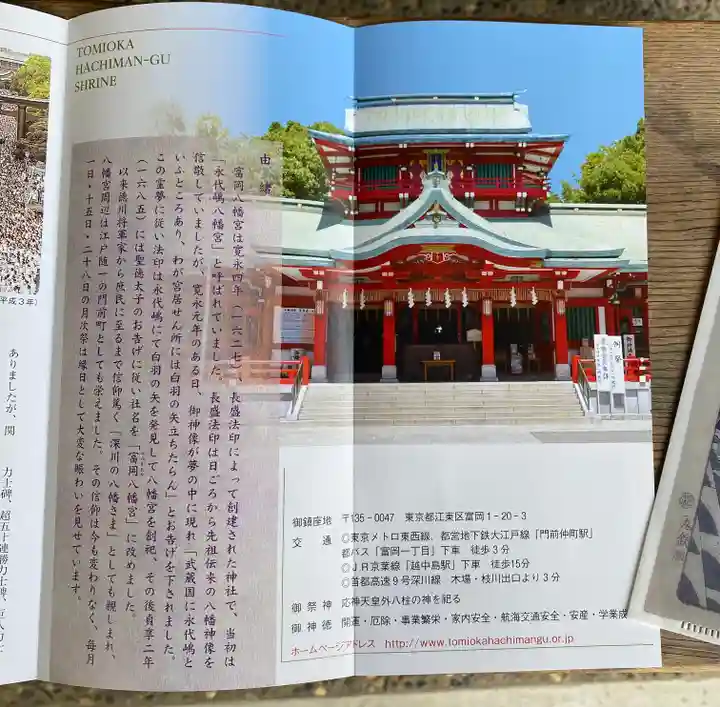 TOMIOKA
HACHIMAN-GU
SHRINE
由緒
富岡八幡宮は寛永四年（一六二七）、長盛法印によって創建された神社で、当初は
「永代嶋八幡宮」と呼ばれていました。長盛法印は日ごろから先祖伝来の八幡神像を
信敬していましたが、寛永元年のある日、御神像が夢の中に現れ「武蔵国に永代嶋と
いふところあり、わが宮居せん所には白羽の矢立ちたらん」とお告げを下されました。
この霊夢に従い法印は永代嶋にて白羽の矢を発見して八幡宮を創祀、その後貞享二年
（一六八五）には聖徳太子のお告げに従い社名を「富岡八幡宮」に改めました。
以来徳川将軍家から庶民に至るまで信仰篤く「深川の八幡さま」としても親しまれ、
八幡宮周辺は江戸随一の門前町としても栄えました。その信仰は今も変わりなく、毎月
一日・十五日・二十八日の月次祭は縁日として大変な賑わいを見せています。
平成3年）
ありましたが、関
力士碑、超五十連勝力士碑、巨人力士
例祭
御鎮座地 〒135-0047 東京都江東区富岡1-20-3
交通 ◎東京メトロ東西線、都営地下鉄大江戸線「門前仲町駅」
都バス「富岡一丁目」下車 徒歩3分
◎JR京葉線「越中島駅」下車 徒歩15分
◎首都高速9号深川線 木場・枝川出口より3分
御祭神 応神天皇外八柱の神を祀る
御神徳 開運・厄除・事業繁栄・家内安全・航海交通安全・安産・学業成
ホームページアドレス http://www.tomiokahachimangu.or.jp